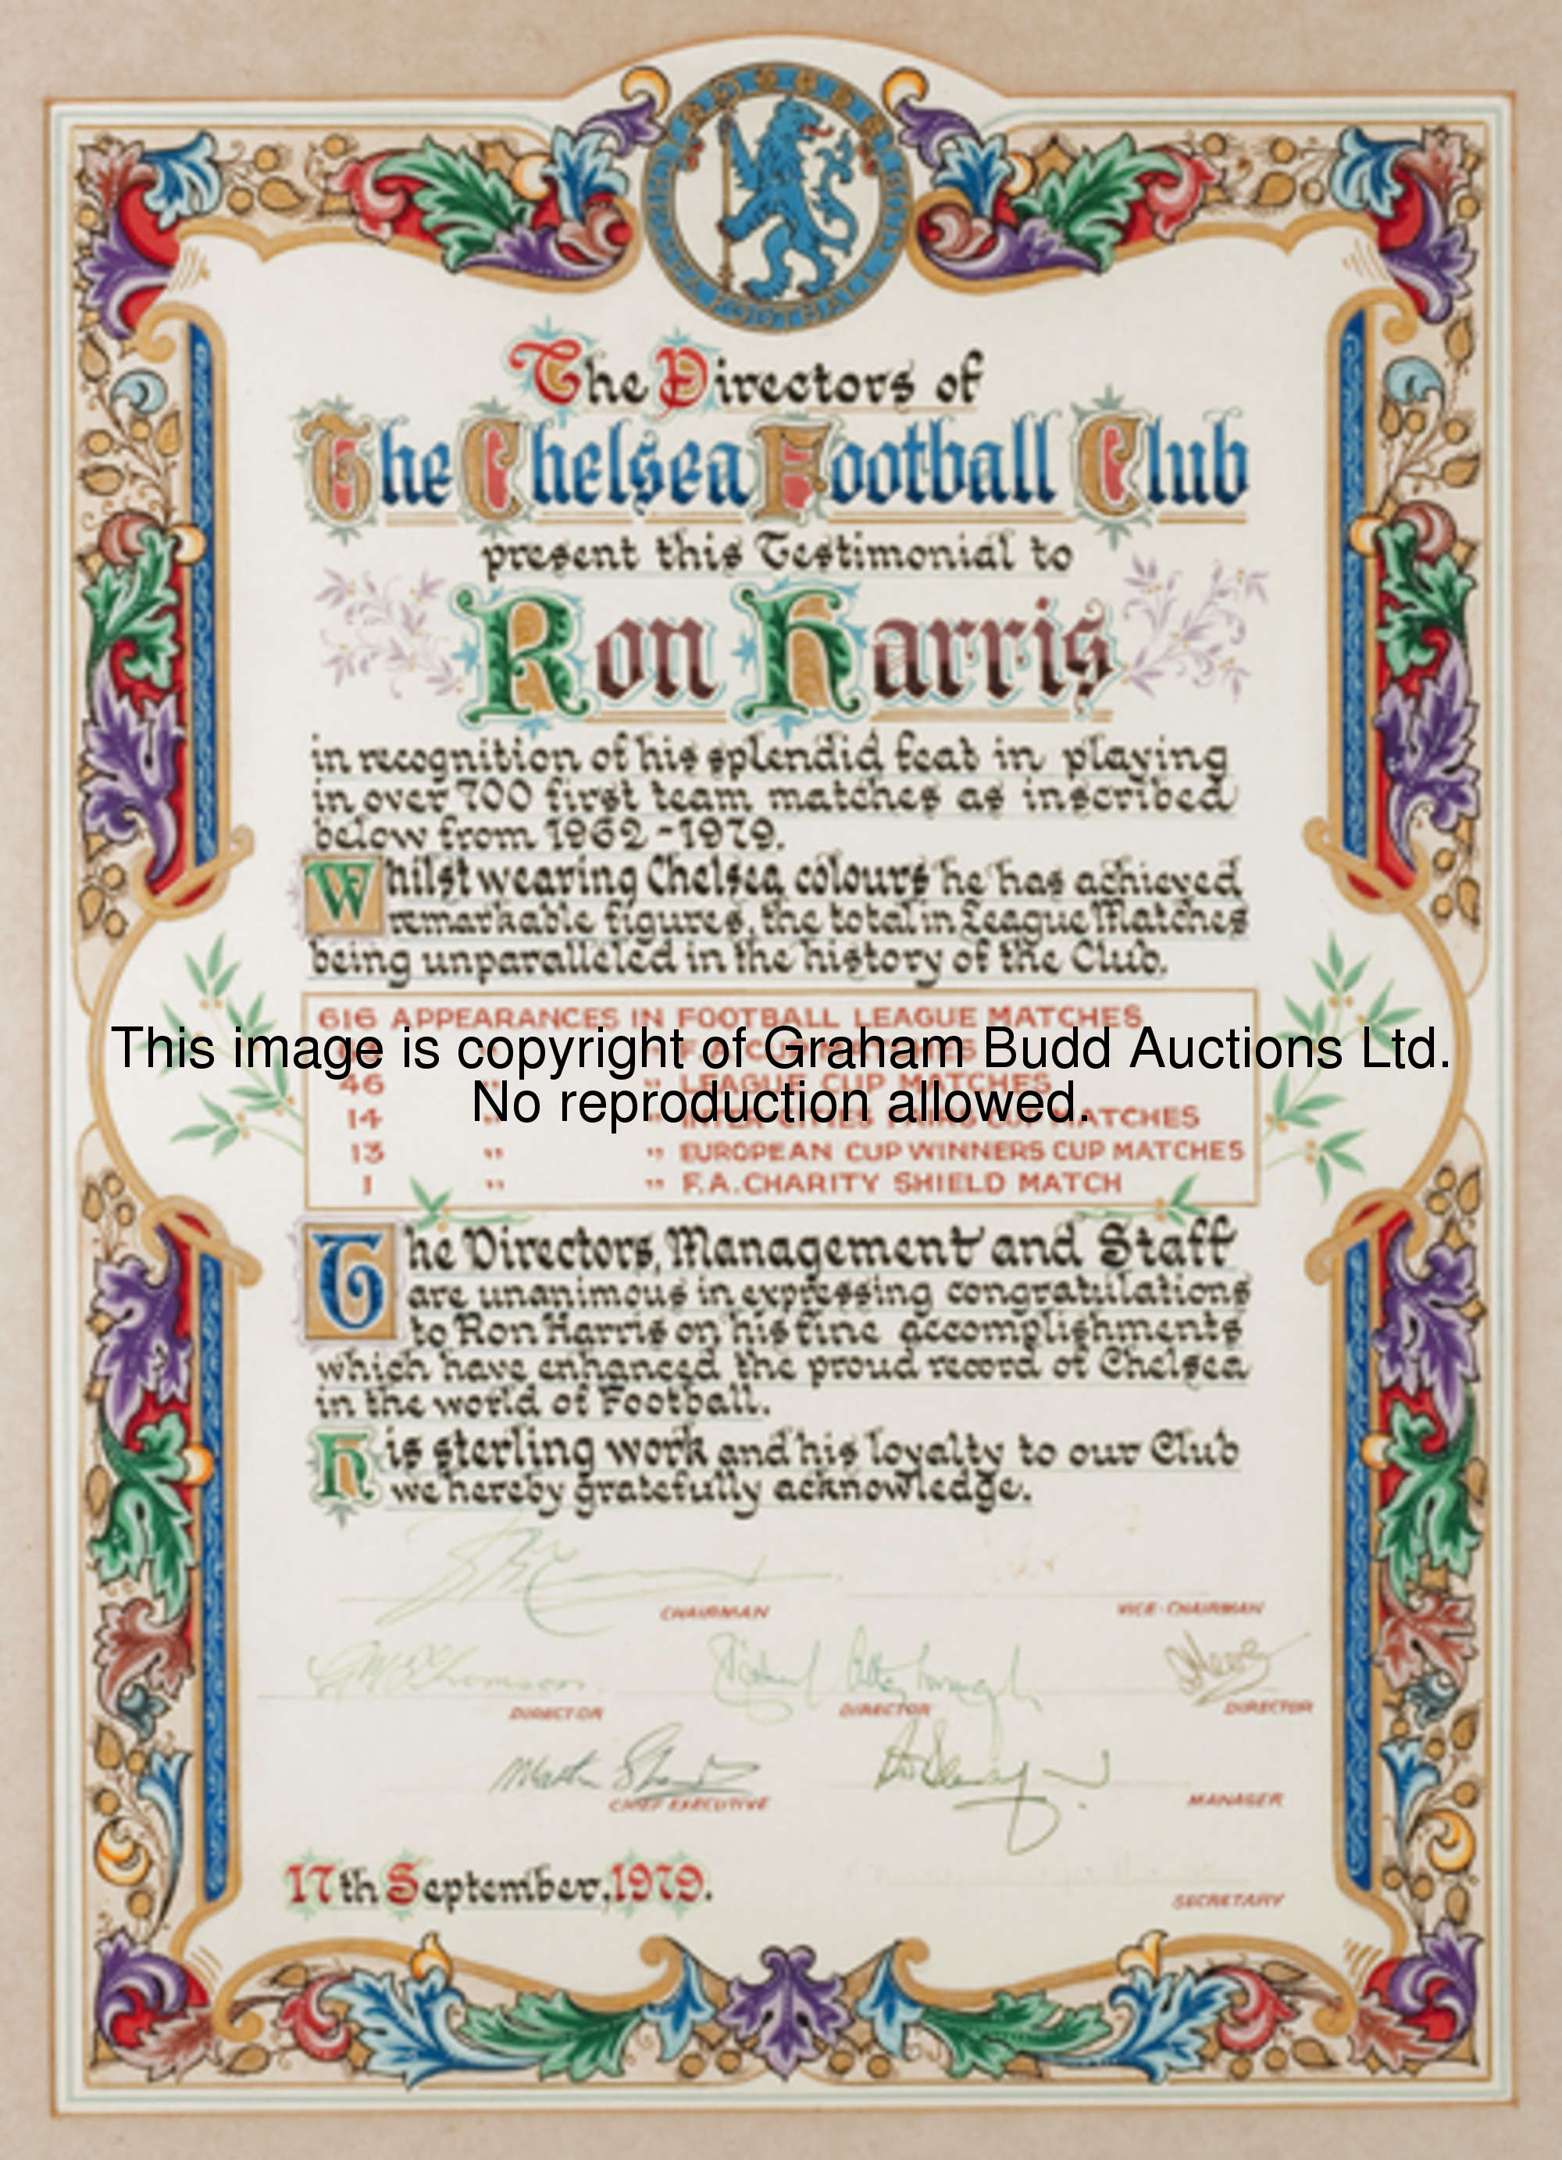 The Directors of
The Chelsea Football Club
present this Testimonial to
Ron Harris
in recognition of his splendid feat in playing
in over 700 first team matches as inscribed
below from 1962-1979.
Whilst wearing Chelsea colours he has achieved
remarkable figures, the total in League Matches
being unparalleled in the history of the Club.
616 APPEARANCES IN FOOTBALL LEAGUE MATCHES
This image is copyright of Graham Budd Auctions Ltd.
" " F.A. CUP MATCHES
46 " " LEAGUE CUP MATCHES
No reproduction allowed.
14 " " INTER CITIES FAIRS CUP MATCHES
13 " " EUROPEAN CUP WINNERS CUP MATCHES
1 " " F.A. CHARITY SHIELD MATCH
The Directors, Management and Staff
are unanimous in expressing congratulations
to Ron Harris on his fine accomplishments
which have enhanced the proud record of Chelsea
in the world of Football.
His sterling work and his loyalty to our Club
we hereby gratefully acknowledge.
CHAIRMAN VICE-CHAIRMAN
G M Thomson Richard Attenborough
DIRECTOR DIRECTOR DIRECTOR
CHIEF EXECUTIVE MANAGER
17th September, 1979.
SECRETARY